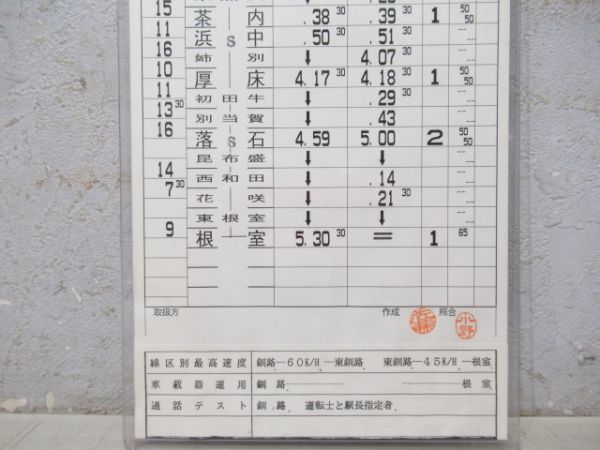 15 茶内 .38 30 .39 30 1 50 50
11 浜S中 .50 30 .51
16 姉別 ↓ 4.07 30
10 厚床 4.17 30 4.18 30 1 50 50
11 初田牛 ↓ .29 30
13 30 別当賀 ↓ .43
16 落S石 4.59 5.00 2 50 50
昆布盛 ↓ ↓
14 西和田 ↓ .14
7 30 花咲 ↓ .21 30
東根室 ↓ ↓
9 根室 5.30 30 = 1 65
取扱方 作成 照合 小野
線区別最高速度 釧路―60K/H―東釧路 東釧路―45K/H―根室
車載器運用 釧路 根室
通話テスト 釧路. 運転士と駅長指定者.